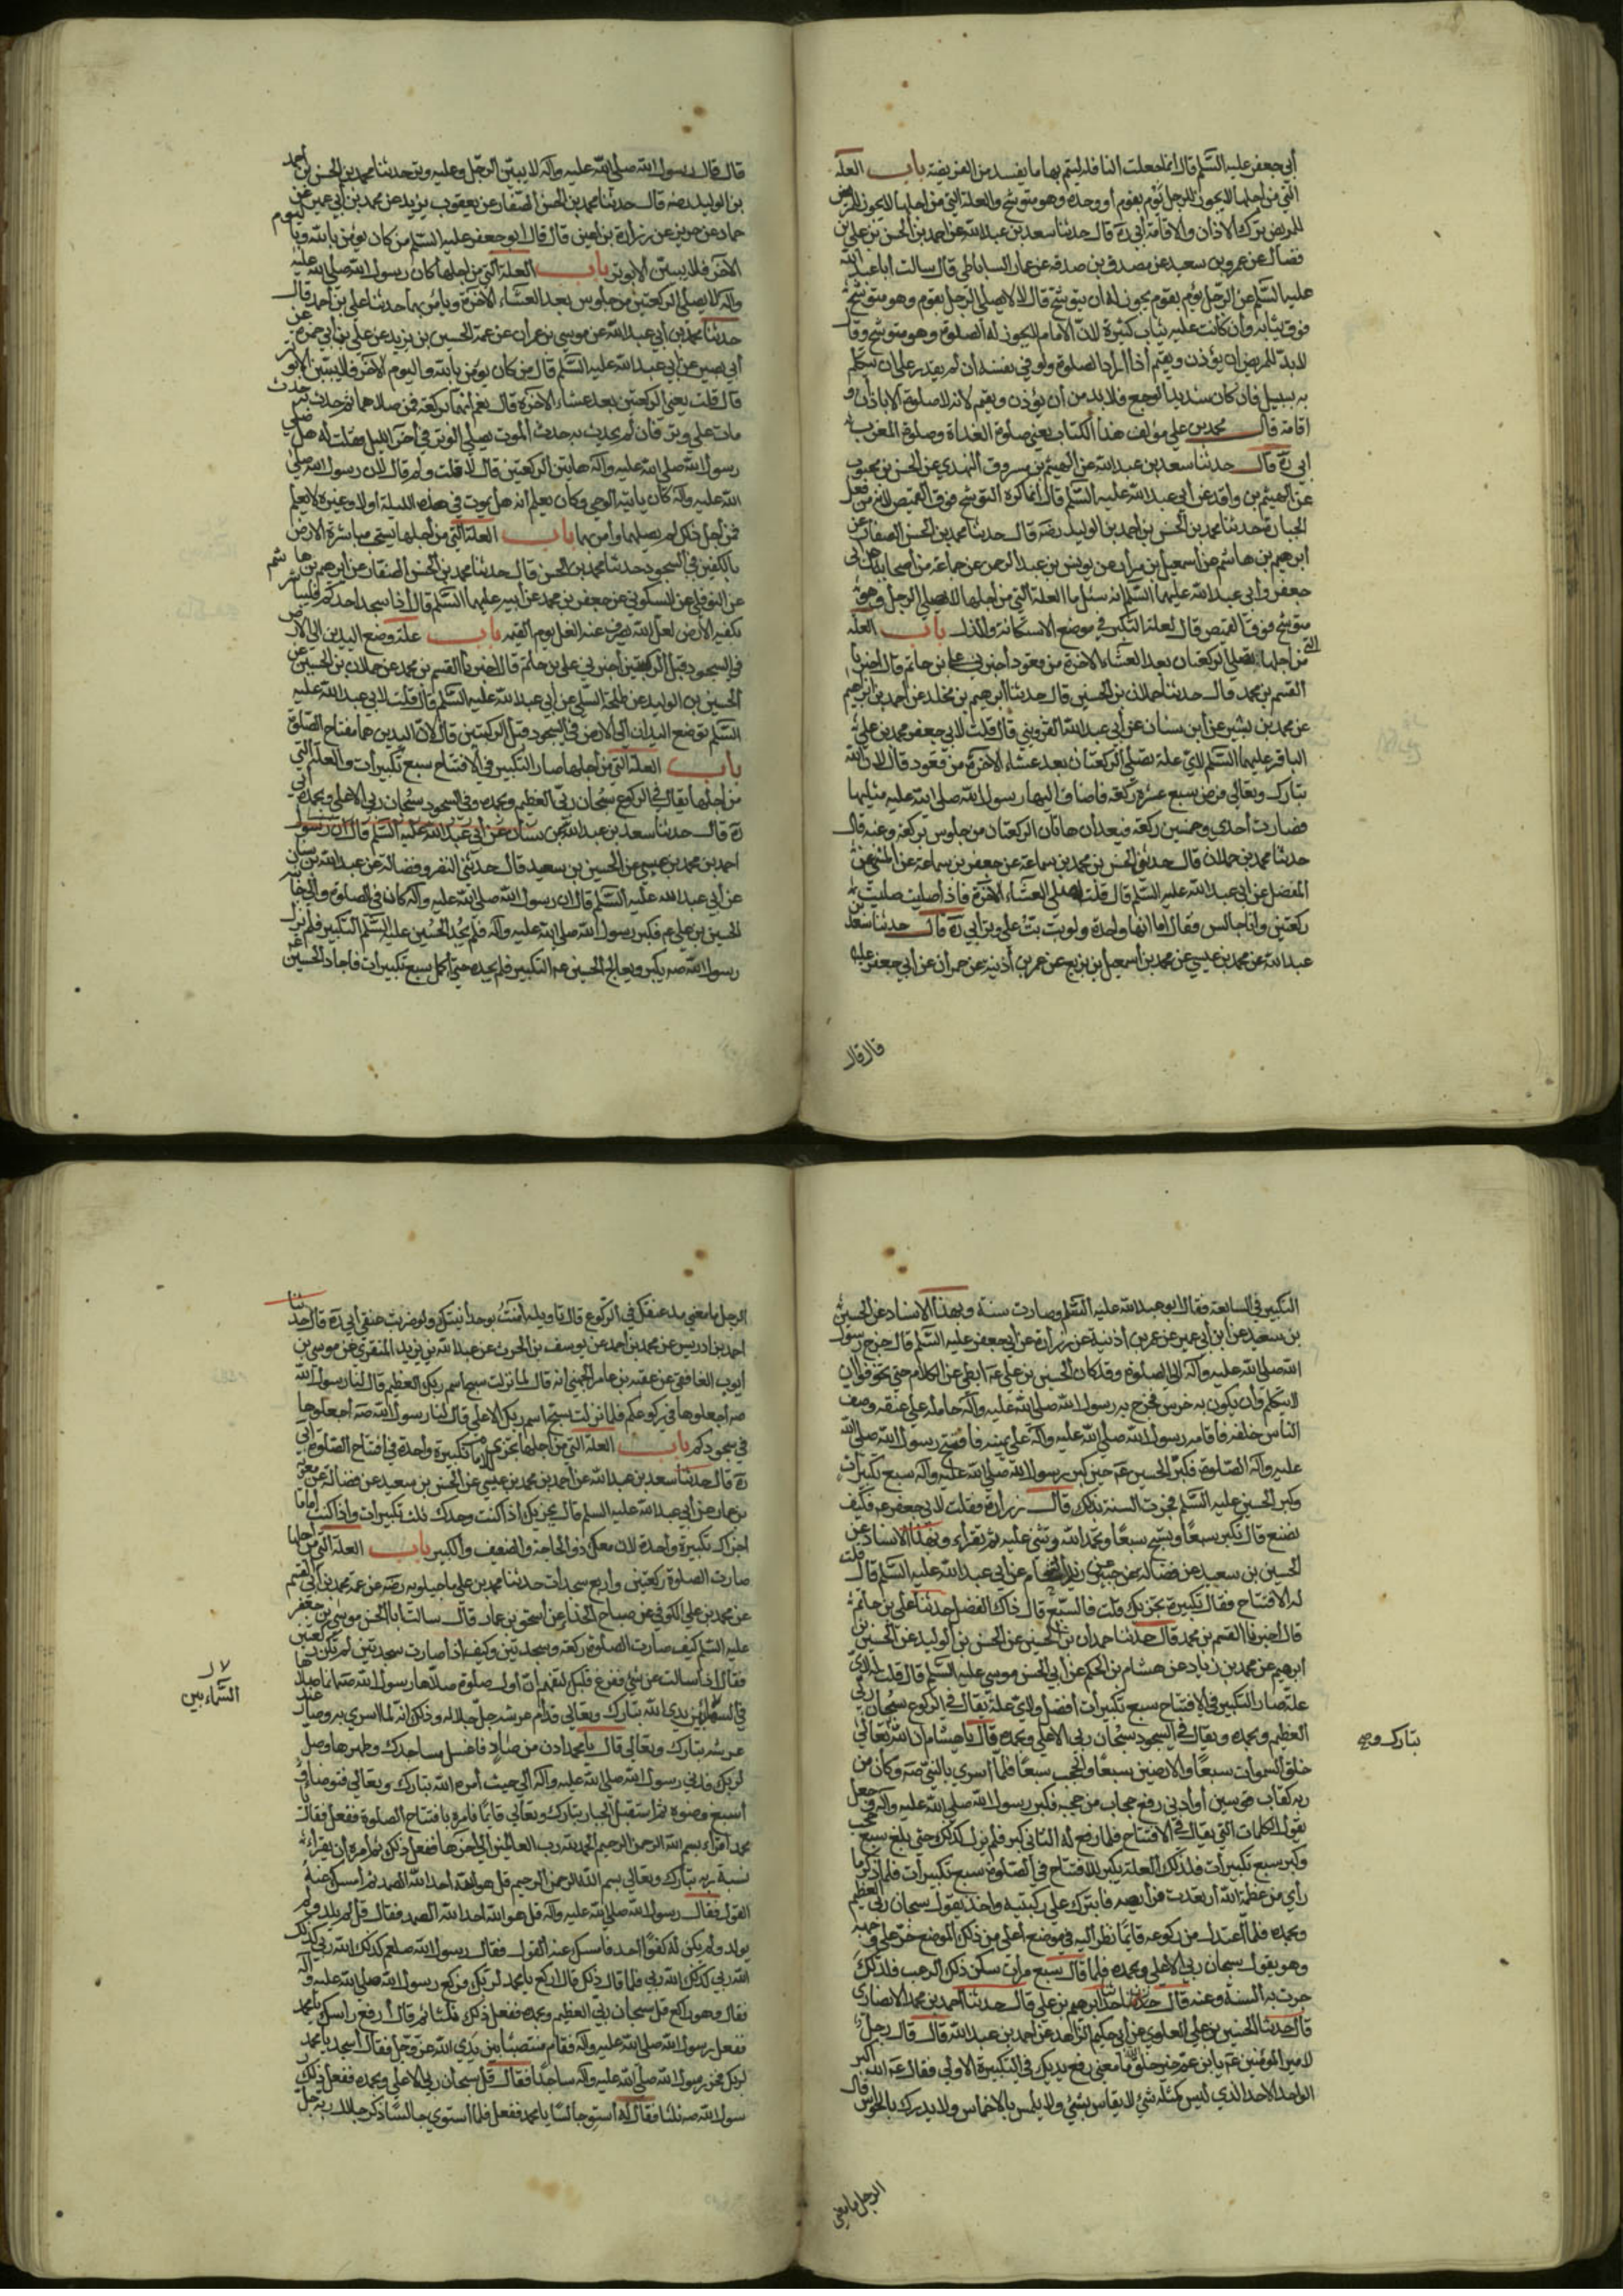 أبي جعفر عليه السلم قال انما جعلت النافلة ليتم بها ما يفسد من الفريضة باب العلة
التي من اجلها لا يجوز للرجل ان يؤم بقوم أو وحده وهو متوشح والعلة التي من اجلها لا يجوز
للمريض ترك الاذان والاقامة أبي ره قال حدثنا سعد بن عبد الله عن احمد بن الحسن بن علي بن
فضال عن عمرو بن سعيد عن مصدق بن صدقة عن عمار الساباطي قال سالت ابا عبد الله
عليه السلم عن الرجل يؤم بقوم يجوز له ان يتوشح قال لا لا يصلي الرجل بقوم وهو متوشح
فوق ثيابه وان كانت عليه ثياب كثيرة لان الامام لا يجوز له الصلوة وهو متوشح وقال
لا بد للمريض ان يؤذن ويقيم اذا اراد الصلوة ولو في نفسه ان لم يقدر على ان يتكلم
به سبيل فان كان شديد الوجع فلا بد من ان يؤذن ويقيم لانه لا صلوة الا باذان و
اقامة قال محمد بن علي مؤلف هذا الكتاب يعني صلوة الغداة وصلوة المغرب
أبي ره قال حدثنا سعد بن عبد الله عن الهيثم بن مسروق النهدي عن الحسن بن محبوب
عن الهيثم بن واقد عن أبي عبد الله عليه السلم قال انما كره التوشح فوق القميص لانه من فعل
الجبابرة حدثنا محمد بن الحسن بن احمد بن الوليد رضه قال حدثنا محمد بن الحسن الصفار عن
ابرهيم بن هاشم عن اسمعيل بن مرار عن يونس بن عبد الرحمن عن جماعة من اصحابنا عن ابي
جعفر وأبي عبد الله عليهما السلم انه سئل ما العلة التي من اجلها لا يصلي الرجل وهو
متوشح فوق القميص قال لعلة التكبر في موضع الاستكانة والذل باب العلة
التي من اجلها يصلي الركعتان بعد العشاء الاخرة من قعود أخبرني علي بن حاتم قال اخبرنا
القسم بن محمد قال حدثنا حمدان بن الحسين قال حدثنا ابرهيم بن مخلد عن احمد بن ابرهيم
عن محمد بن بشير عن ابن سنان عن أبي عبد الله القزويني قال قلت لأبي جعفر محمد بن علي
الباقر عليهما السلم لاي علة تصلي الركعتان بعد عشاء الاخرة من قعود قال لان الله
تبارك وتعالى فرض سبع عشرة ركعة فاضاف اليها رسول الله صلى الله عليه مثليها
فصارت احدي وخمسين ركعة فتعد ان هاتان الركعتان من جلوس بركعة وعنه قال
حدثنا محمد بن حمدان قال حدثني الحسن بن محمد بن سماعة عن جعفر بن سماعة عن المثنى عن
المفضل عن أبي عبد الله عليه السلم قال قلت اصلي العشاء الاخرة فاذا صليت صليت
ركعتين وانا جالس فقال اما انها واحدة ولو بت بت على وتر أبي ره قال حدثنا سعد بن
عبد الله عن محمد بن عيسى عن محمد بن اسمعيل بن بزيع عن عمر بن أذينة عن حمران عن أبي جعفر عليه
قال قال
قال قال رسول الله صلى الله عليه وآله لا يبيتن الرجل وعليه وتر حدثنا محمد بن الحسن بن احمد
بن الوليد رضه قال حدثنا محمد بن الحسن الصفار عن يعقوب بن يزيد عن محمد بن أبي عمير عن
حماد عن حريز عن زرارة بن اعين قال قال ابو جعفر عليه السلم من كان يؤمن بالله واليوم
الآخر فلا يبيتن الا بوتر باب العلة التي من اجلها كان رسول الله صلى الله عليه
وآله لا يصلي الركعتين من جلوس بعد العشاء الاخرة ويأمر بهما حدثنا علي بن احمد قال
حدثنا محمد بن أبي عبد الله عن موسى بن عمران عن عمه الحسين بن يزيد عن علي بن أبي حمزة عن
أبي بصير عن أبي عبد الله عليه السلم قال من كان يؤمن بالله واليوم الآخر فلا يبيتن الا بوتر
قال قلت يعني الركعتين بعد عشاء الاخرة قال نعم انهما بركعة فمن صلاهما ثم حدث به حدث
مات على وتر فان لم يحدث به حدث الموت يصلي الوتر في آخر الليل فقلت له هل صلى
رسول الله صلى الله عليه وآله هاتين الركعتين قال لا قلت ولم قال لان رسول الله صلى
الله عليه وآله كان يأتيه الوحي وكان يعلم انه هل يموت في هذه الليلة أو لا وغيره لا يعلم
فمن أجل ذلك لم يصلهما وأمر بهما باب العلة التي من أجلها يستحب مباشرة الارض
بالكفين في السجود حدثنا محمد بن الحسن قال حدثنا محمد بن الحسن الصفار عن ابرهيم بن هاشم
عن النوفلي عن السكوني عن جعفر بن محمد عن أبيه عليهما السلم قال اذا سجد احدكم فليباشر
بكفيه الارض لعل الله يصرف عنه الغل يوم القيمة باب علة وضع اليدين الى الارض
في السجود قبل الركبتين أخبرني علي بن حاتم قال اخبرنا القسم بن محمد عن حمدان بن الحسين عن
الحسين بن الوليد عن طلحة السلمي عن أبي عبد الله عليه السلم قال قلت لابي عبد الله عليه
السلم توضع اليدان الى الارض في السجود قبل الركبتين قال لان اليدين هما مفتاح الصلوة
باب العلة التي من أجلها صار التكبير في الافتتاح سبع تكبيرات والعلة التي
من اجلها يقال في الركوع سبحان ربي العظيم وبحمده وفي السجود سبحان ربي الاعلى وبحمده أبي
ره قال حدثنا سعد بن عبد الله عن سنان عن أبي عبد الله عليه السلم قال ان رسول
احمد بن محمد بن عيسى عن الحسين بن سعيد قال حدثني النضر وفضالة عن عبد الله بن سنان
عن أبي عبد الله عليه السلم قال ان رسول الله صلى الله عليه وآله كان في الصلوة والى جانبه
الحسين بن علي ع فكبر رسول الله صلى الله عليه وآله فلم يحد الحسين عليه السلم التكبير فلم يزل
رسول الله صه يكبر ويعالج الحسين عه التكبير فلم يحده حتى اكمل سبع تكبيرات فاحاد الحسين
التكبير في السابعة فقال ابو عبد الله عليه السلم وصارت سنة وبهذا الاسناد عن الحسين
بن سعيد عن ابن أبي عمير عن عمر بن أذينة عن زرارة عن أبي جعفر عليه السلم قال خرج رسول
الله صلى الله عليه وآله الى الصلوة وقد كان الحسين بن علي عه ابطى عن الكلام حتى تخوفوا ان
لا يتكلم وأن يكون به خرس فخرج به رسول الله صلى الله عليه وآله حامله على عنقه وصف
الناس خلفه فاقامه رسول الله صلى الله عليه وآله على يمينه فافتتح رسول الله صلى الله
عليه وآله الصلوة فكبر الحسين عه حين كبر رسول الله صلى الله عليه وآله سبع تكبيرات
وكبر الحسين عليه السلم فجرت السنة بذلك قال زرارة فقلت لابي جعفر عه فكيف
نصنع قال تكبر سبعا وتسبح سبعا وتحمد الله وتثني عليه ثم تقراء وبهذا الاسناد عن
الحسين بن سعيد عن فضالة عن حسين زيد الشحام عن أبي عبد الله عليه السلم قال قلت
له الافتتاح فقال تكبيرة تجزيك قلت فالسبع قال ذاك الفضل حدثنا علي بن حاتم
قال أخبرنا القسم بن محمد قال حدثنا حمدان بن الحسين عن الحسن بن الوليد عن الحسين بن
ابرهيم عن محمد بن زياد عن هشام بن الحكم عن أبي الحسن موسى عليه السلم قال قلت له لاي
علة صار التكبير في الافتتاح سبع تكبيرات أفضل ولاي علة يقال في الركوع سبحان ربي
العظيم وبحمده ويقال في السجود سبحان ربي الاعلى وبحمده قال يا هشام ان الله تعالى
تبارك وه
خلق السموات سبعا والارضين سبعا والحجب سبعا فلما أسرى بالنبي صه وكان من
ربه كقاب قوسين أو أدنى رفع حجاب من حجبه فكبر رسول الله صلى الله عليه وآله وجعل
يقول الكلمات التي يقال في الافتتاح فلما رفع له الثاني كبر فلم يزل كذلك حتى بلغ سبع حجب
وكبر سبع تكبيرات فلذلك العلة يكبر للافتتاح في الصلوة سبع تكبيرات فلما ذكر ما
رأى من عظمة الله ارتعدت فرائصه فابترك على ركبتيه واخذ يقول سبحان ربي العظيم
وبحمده فلما اعتدل من ركوعه قائما نظر اليه في موضع أعلى من ذلك الموضع خر على وجهه
وهو يقول سبحان ربي الاعلى وبحمده فلما قال سبع مرات سكن ذلك الرعب فلذلك
جرت به السنة وعنه قال حدثنا ابرهيم بن علي قال حدثنا احمد بن محمد الانصاري
قال حدثنا الحسين بن علي العلوي عن أبي حكيم الزاهد عن احمد بن عبد الله قال قال رجل
لامير المؤمنين عه يا ابن عم خير خلق الله ما معنى رفع يديك في التكبيرة الاولى فقال عه الله اكبر
الواحد الاحد الذي ليس كمثله شيء لا يقاس بشيء ولا يلمس بالاخماس ولا يدرك بالحواس قال
الرجل ما معنى
الرجل ما معنى مد عنقك في الركوع قال تاويله آمنت بوحدانيتك ولو ضربت عنقي أبي ره قال حدثنا
احمد بن ادريس عن محمد بن احمد عن يوسف بن الحرث عن عبد الله بن يزيد المنقري عن موسى بن
ايوب الغافقي عن عقبة بن عامر الجهني انه قال لما نزلت سبح باسم ربك العظيم قال لنا رسول الله
صه اجعلوها في ركوعكم فلما نزلت سبح اسم ربك الاعلى قال لنا رسول الله صه اجعلوها
في سجودكم باب العلة التي من أجلها تجزي الامام تكبيرة واحدة في افتتاح الصلوة أبي
ره قال حدثنا سعد بن عبد الله عن أحمد بن محمد بن عيسى عن الحسن بن سعيد عن فضالة عن معوية
بن عمار عن أبي عبد الله عليه السلم قال يجزيك اذا كنت وحدك ثلث تكبيرات واذا كنت اماما
اجزاك تكبيرة واحدة لان معك ذو الحاجة والضعيف والكبير باب العلة التي من اجلها
صارت الصلوة ركعتين واربع سجدات حدثنا محمد بن علي ماجيلويه رضه عن عمه محمد بن ابي القسم
عن محمد بن علي الكوفي عن صباح الحذاء عن اسحق بن عمار قال سالت ابا الحسن موسى بن جعفر
عليه السلم كيف صارت الصلوة ركعة وسجدتين وكيف اذا صارت سجدتين لم تكن ركعتين
فقال اذا سالت عن شيء ففرغ قلبك لتفهم ان أول صلوة صلاها رسول الله صه انما صلاها
لا
السماء بين
في السماء بين يدي الله تبارك وتعالى قدام عرشه جل جلاله وذلك انه لما اسري به وصار عند
عرشه تبارك وتعالى قال يا محمد ادن من صاد فاغسل مساجدك وطهرها وصل
لربك فدنى رسول الله صلى الله عليه وآله الى حيث أمره الله تبارك وتعالى فتوضأ و
أسبغ وضوءه ثم استقبل الجبار تبارك وتعالى قائما فامره بافتتاح الصلوة ففعل فقال
محمد اقراء بسم الله الرحمن الرحيم الحمد لله رب العالمين الى آخرها ففعل ذلك ثم امره ان يقراء
نسبة ربه تبارك وتعالى بسم الله الرحمن الرحيم قل هو الله احد الله الصمد ثم أمسك عنه
القول فقال رسول الله صلى الله عليه وآله قل هو الله احد الله الصمد فقال قل لم يلد ولم
يولد ولم يكن له كفوا احد فامسك عنه القول فقال رسول الله صلعم كذلك الله ربي كذلك
الله ربي كذلك الله ربي فلما قال ذلك قال اركع يا محمد لربك فركع رسول الله صلى الله عليه وآله
فقال وهو راكع قل سبحان ربي العظيم وبحمده ففعل ذلك ثلثا ثم قال ارفع راسك يا محمد
ففعل رسول الله صلى الله عليه وآله فقام منتصبا بين يدي الله عز وجل فقال اسجد يا محمد
لربك فخر رسول الله صلى الله عليه وآله ساجدا فقال قل سبحان ربي الاعلى وبحمده ففعل ذلك ر
سول الله صه ثلثا فقال له استو جالسا يا محمد ففعل فلما استوى جالسا ذكر جلال ربه جل